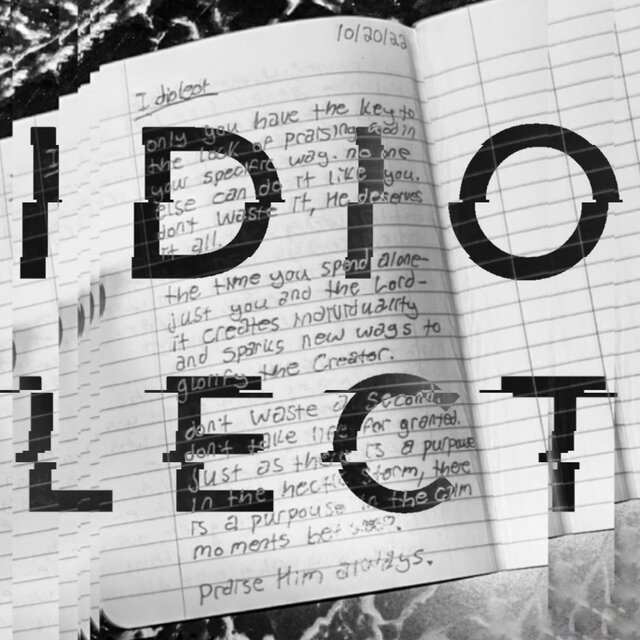 10/20/22
Idiolect
only you have the key to
the lock of praising God in
your specific way. no one
else can do it like you.
don't waste it, He deserves
it all.
the time you spend alone-
just you and the Lord-
it creates individuality
and sparks new ways to
glorify the Creator.
don't waste a second.
don't take life for granted.
just as there is a purpouse
in the hectic storm, there
is a purpouse in the calm
moments between.
praise Him always.
IDIO
LECT